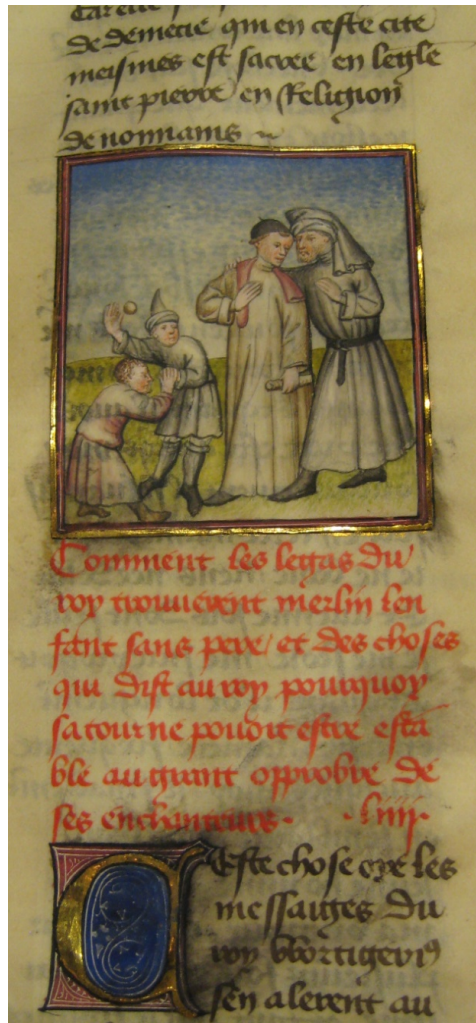 de demecie qui en ceste cite
meismes est sacree en legle
saint pierre en Religion
de nonnains
Comment les legas du
roy trouverent merlin len
fant sans pere / et des choses
qui dist au roy pourquoy
sa tour ne pouoit estre esta
ble au grant opprobre de
ses enchanteurs · liiii·
Ceste chose oye les
messaiges du
roy vortigern9
sen alerent au